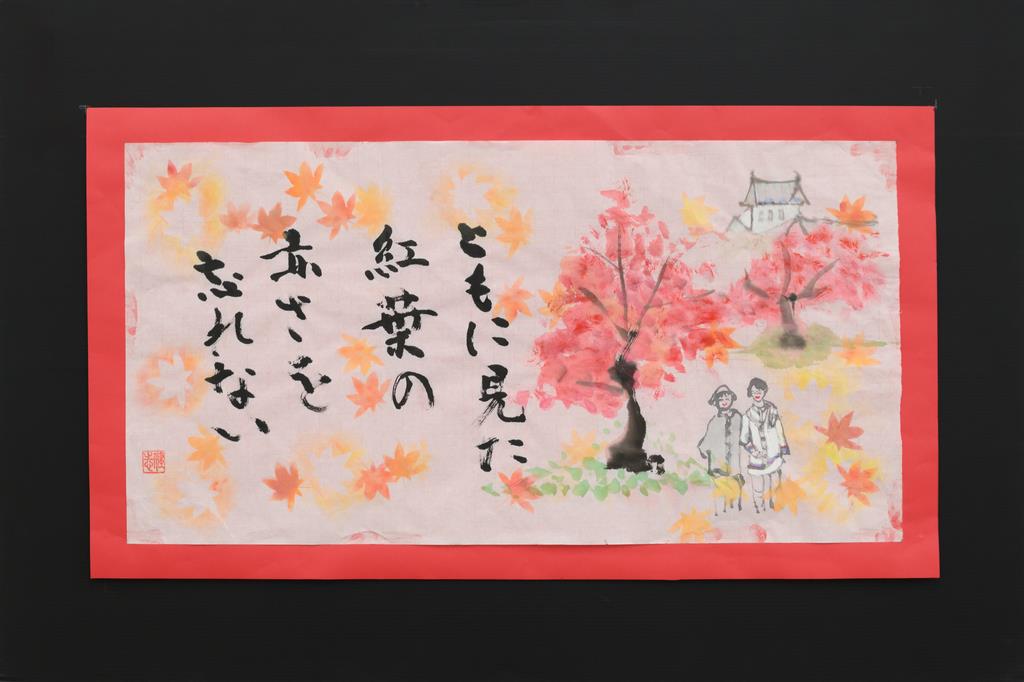 ともに見た
紅葉の
赤さを
忘れない